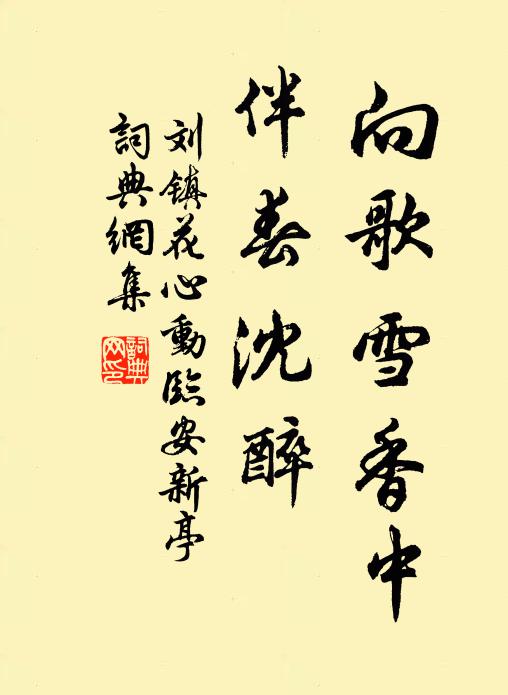 向歌雪香中
伴春沈醉
刘镇花心動臨安新亭
詞典網集
詞典网印